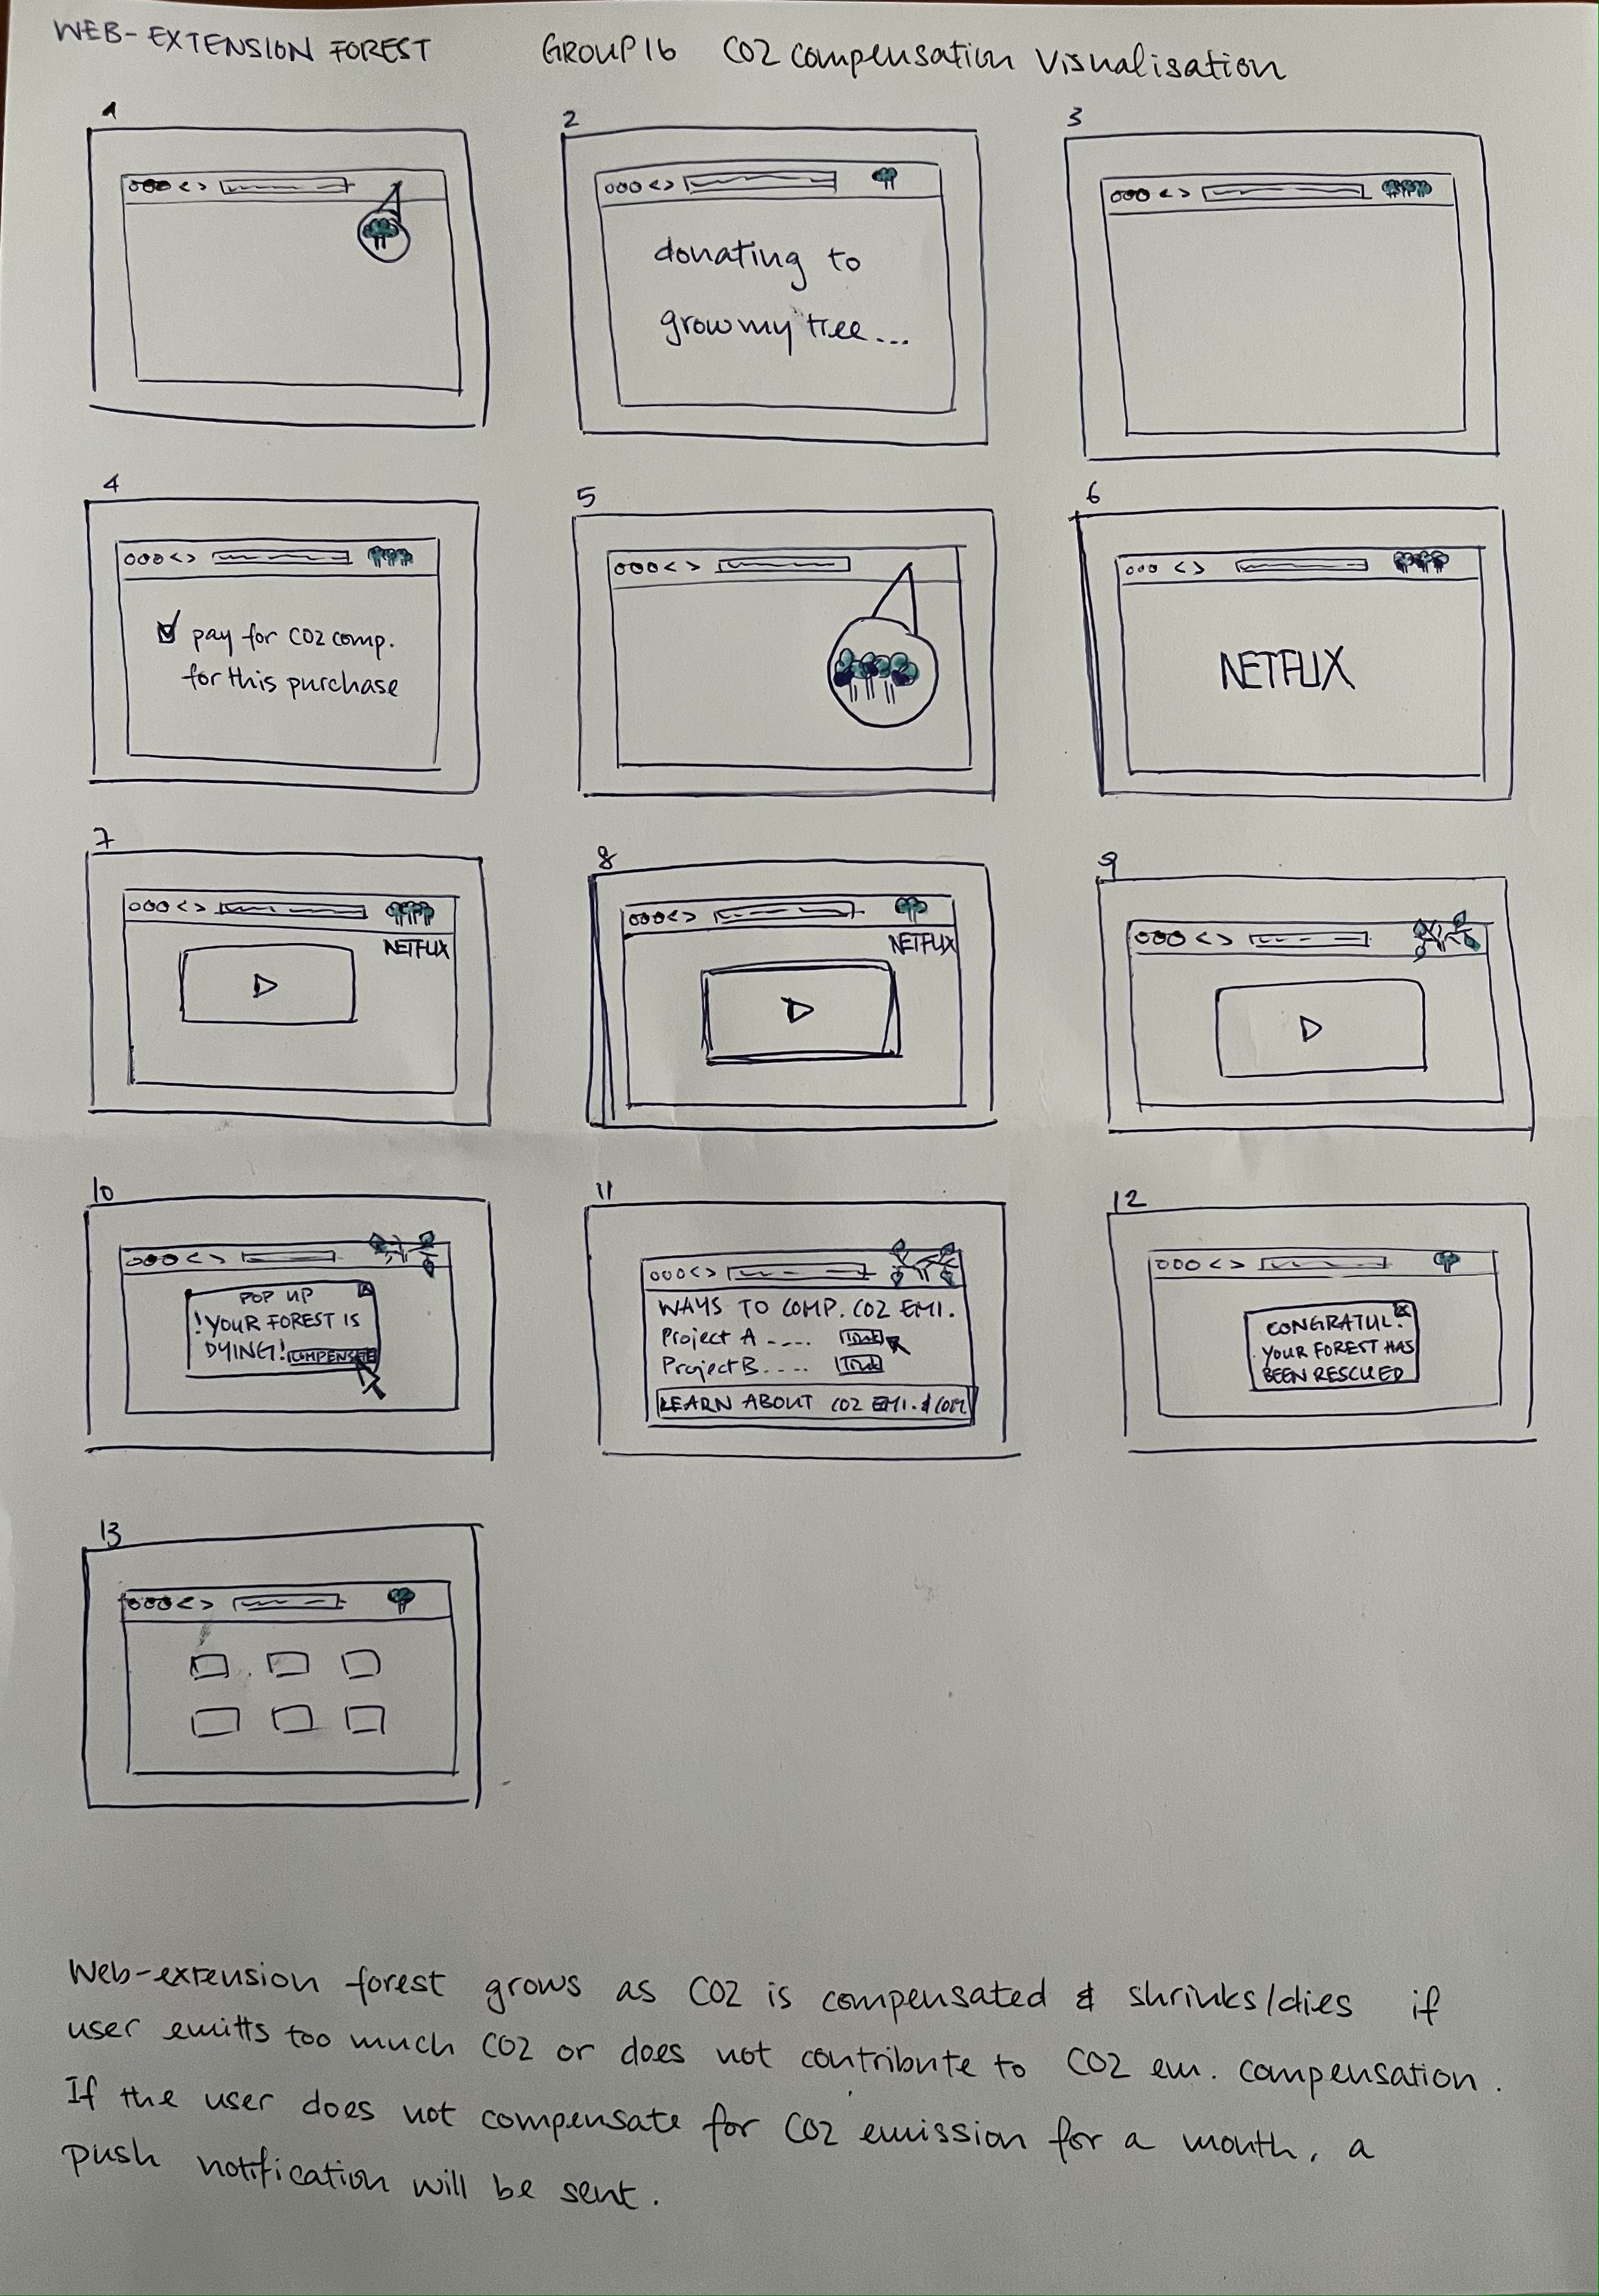 WEB-EXTENSION FOREST GROUP 16 CO2 compensation Visualisation
1
2
3
donating to
growmytree...
4
5
6
pay for CO2 comp.
for this purchase
NETFLIX
7
8
9
NETFLIX
NETFLIX
10
11
12
POP UP
! YOUR FOREST IS
DYING! COMPENSATE
WAYS TO COMP. CO2 EMI.
Project A .....
Project B.....
LEARN ABOUT CO2 EMI. & COM
CONGRATUL!
YOUR FOREST HAS
BEEN RESCUED
13
Web-extension forest grows as CO2 is compensated & shrinks/dies if
user emitts too much CO2 or does not contribute to CO2 em. compensation.
If the user does not compensate for CO2 emission for a month, a
push notification will be sent.